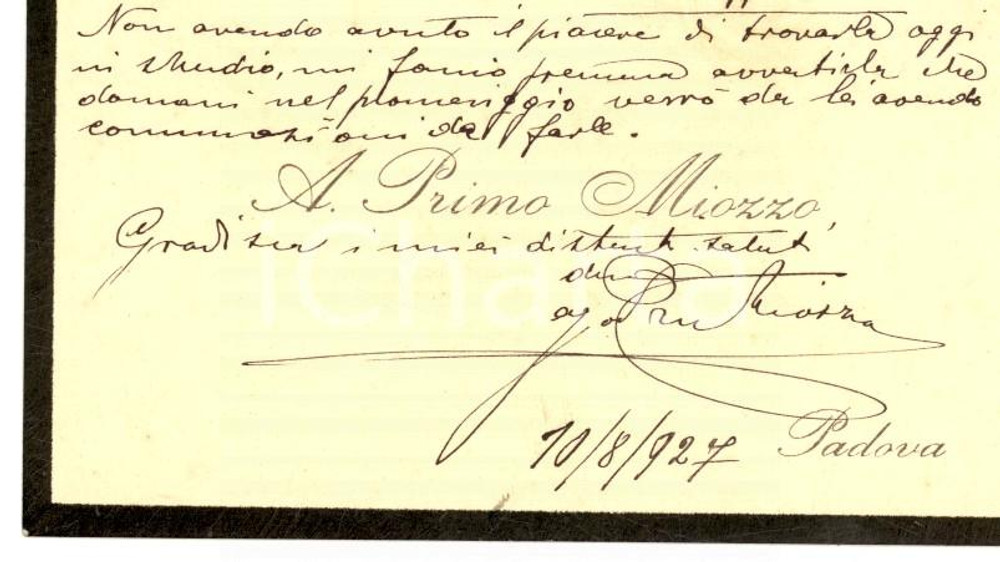 Non avendo avuto il piacere di trovarla oggi
in studio, mi faccio premura avvertirla che
domani nel pomeriggio verrò da lei avendo
comunicazioni da farle.
A. Primo Miozzo
Gradisca i miei distinti saluti
Miozzo
10/8/927 Padova